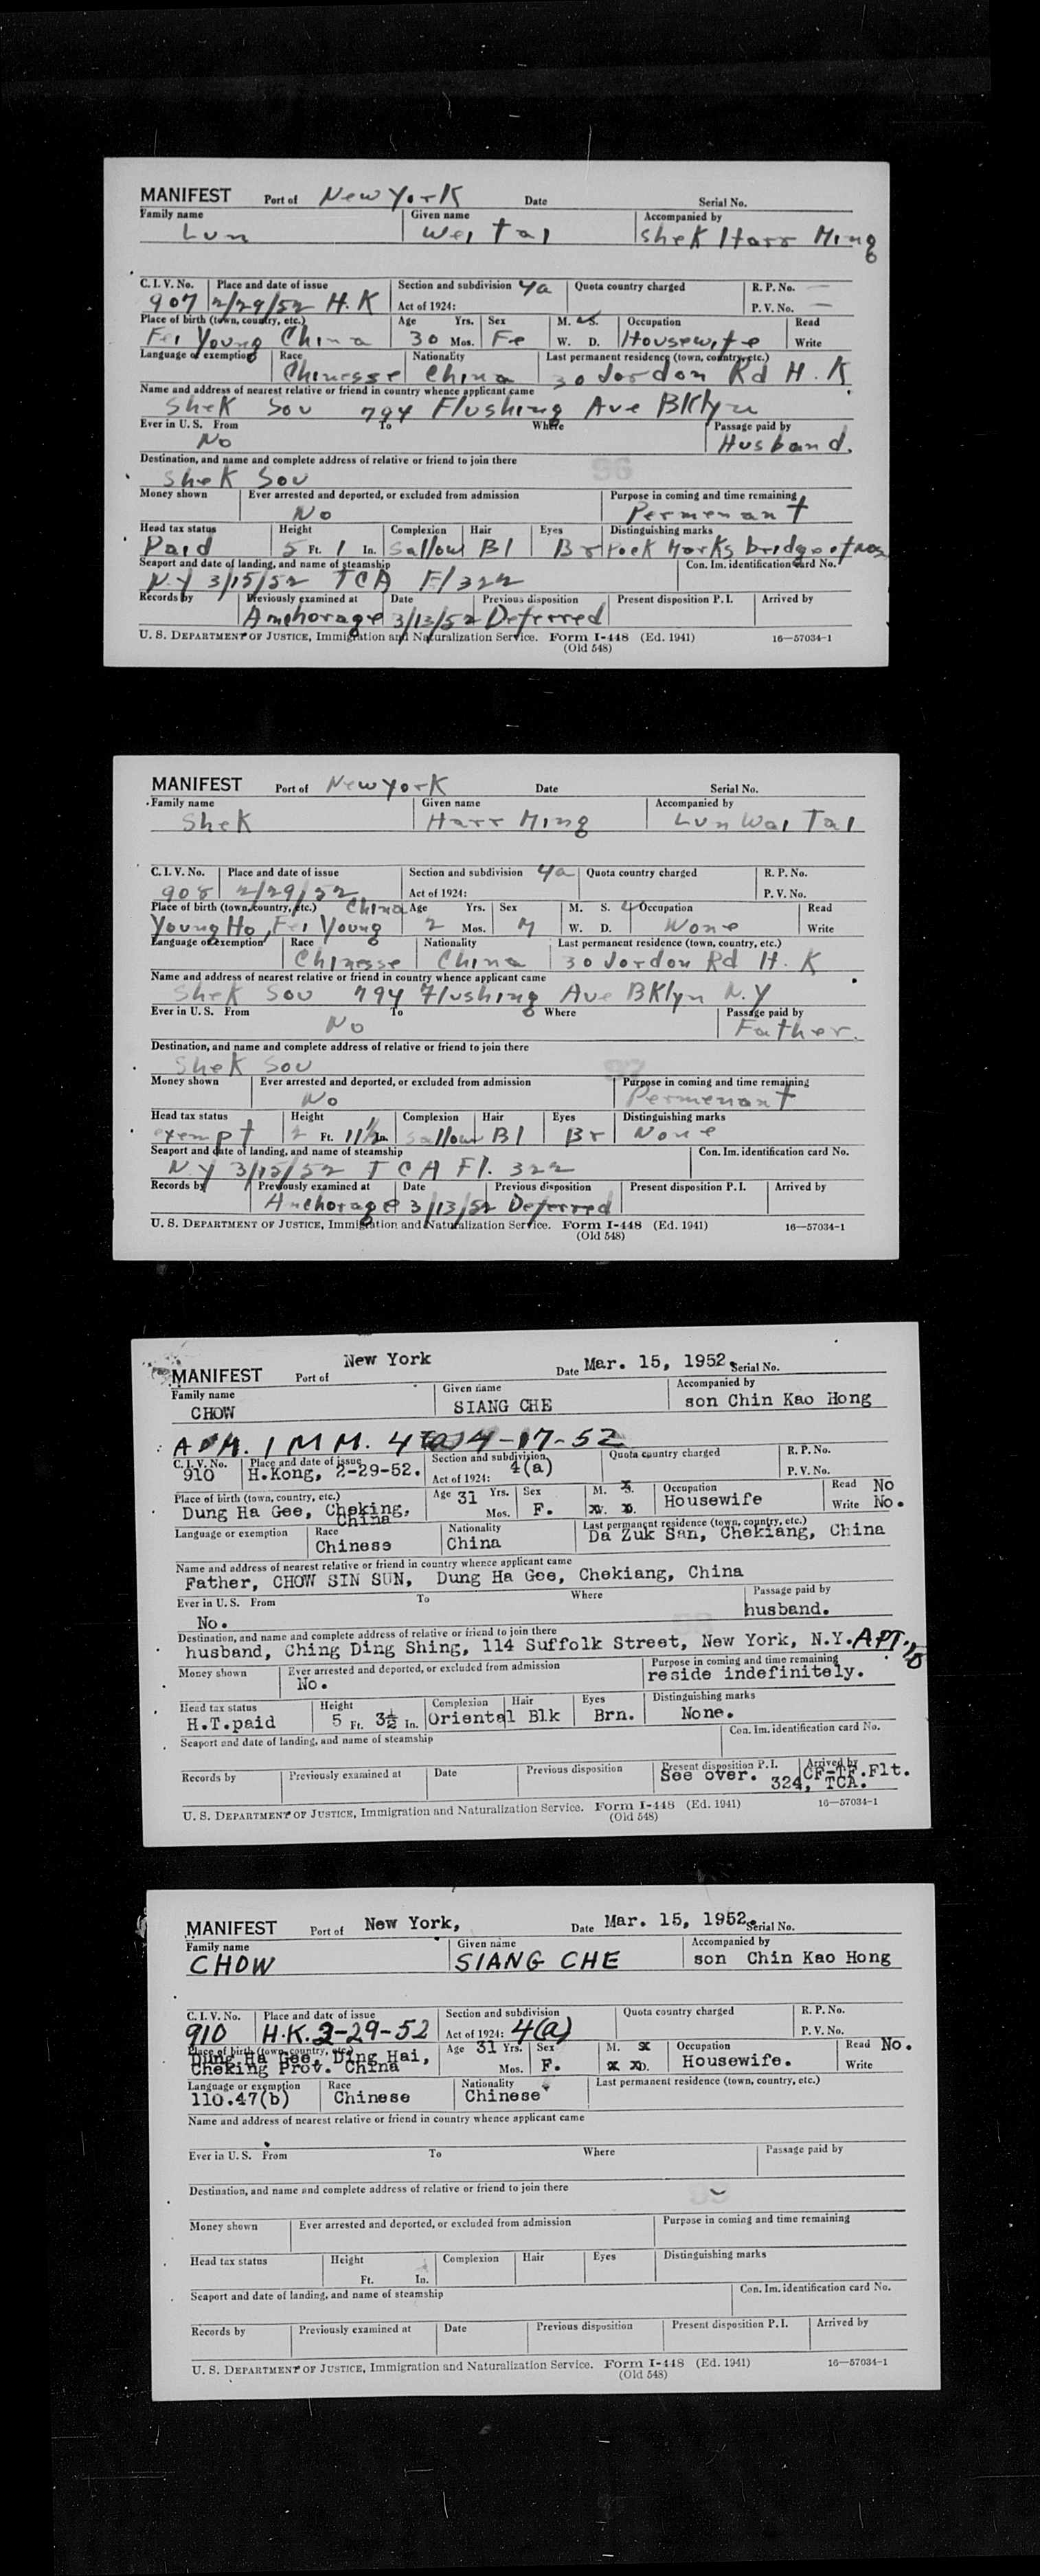 MANIFEST Port of New York Date Serial No.
Family name Given name Accompanied by
Lun Wei Tai Shek Harr Ming
C. I. V. No. Place and date of issue Section and subdivision 4a Quota country charged R. P. No. —
907 2/29/52 H.K Act of 1924: P. V. No. —
Place of birth (town, country, etc.) Age Yrs. Sex M. S. Occupation Read
Fei Young China 30 Mos. Fe W. D. Housewife Write
Language or exemption Race Nationality Last permanent residence (town, country, etc.)
Chinesse China 30 Jordon Rd H.K
Name and address of nearest relative or friend in country whence applicant came
Shek Sou 794 Flushing Ave Bklyn
Ever in U. S. From To Where Passage paid by
No Husband.
Destination, and name and complete address of relative or friend to join there
96
Shek Sou
Money shown Ever arrested and deported, or excluded from admission Purpose in coming and time remaining
No Permenant
Head tax status Height Complexion Hair Eyes Distinguishing marks
Paid 5 Ft. 1 In. Sallow Bl Br Pock Marks bridge of nose
Seaport and date of landing, and name of steamship Con. Im. identification card No.
N.Y 3/15/52 TCA Fl 322
Records by Previously examined at Date Previous disposition Present disposition P. I. Arrived by
Anchorage 3/13/52 Deferred
U. S. DEPARTMENT OF JUSTICE, Immigration and Naturalization Service. Form I-448 (Ed. 1941) 16—57034-1
(Old 548)
MANIFEST Port of New York Date Serial No.
Family name Given name Accompanied by
Shek Harr Ming Lun Wai Tai
C. I. V. No. Place and date of issue Section and subdivision 4a Quota country charged R. P. No.
908 2/29/52 Act of 1924: P. V. No.
Place of birth (town, country, etc.) China Age Yrs. Sex M. S. Occupation Read
Young Ho, Fei Young 2 Mos. M W. D. None Write
Language or exemption Race Nationality Last permanent residence (town, country, etc.)
Chinesse China 30 Jordon Rd H.K
Name and address of nearest relative or friend in country whence applicant came
Shek Sou 794 Flushing Ave Bklyn N.Y
Ever in U. S. From To Where Passage paid by
No Father.
Destination, and name and complete address of relative or friend to join there
97
Shek Sou
Money shown Ever arrested and deported, or excluded from admission Purpose in coming and time remaining
No Permenant
Head tax status Height Complexion Hair Eyes Distinguishing marks
exempt 2 Ft. 11½ In. Sallow Bl Br None
Seaport and date of landing, and name of steamship Con. Im. identification card No.
N.Y 3/15/52 TCA Fl. 322
Records by Previously examined at Date Previous disposition Present disposition P. I. Arrived by
Anchorage 3/13/52 Deferred
U. S. DEPARTMENT OF JUSTICE, Immigration and Naturalization Service. Form I-448 (Ed. 1941) 16—57034-1
(Old 548)
MANIFEST Port of New York Date Mar. 15, 1952. Serial No.
Family name Given name Accompanied by
CHOW SIANG CHE son Chin Kao Hong
ADM. IMM. 4(a) 4-17-52
C. I. V. No. Place and date of issue Section and subdivision Quota country charged R. P. No.
910 H.Kong, 2-29-52. Act of 1924: 4(a) P. V. No.
Place of birth (town, country, etc.) Age 31 Yrs. Sex M. S. Occupation Read No
Dung Ha Gee, Cheking, China Mos. F. W. D. Housewife Write No.
Language or exemption Race Nationality Last permanent residence (town, country, etc.)
Chinese China Da Zuk San, Chekiang, China
Name and address of nearest relative or friend in country whence applicant came
Father, CHOW SIN SUN, Dung Ha Gee, Chekiang, China
Ever in U. S. From To Where Passage paid by
No. husband.
Destination, and name and complete address of relative or friend to join there
husband, Ching Ding Shing, 114 Suffolk Street, New York, N.Y. APT.
Money shown Ever arrested and deported, or excluded from admission Purpose in coming and time remaining
No. reside indefinitely.
Head tax status Height Complexion Hair Eyes Distinguishing marks
H.T.paid 5 Ft. 3½ In. Oriental Blk Brn. None.
Seaport and date of landing, and name of steamship Con. Im. identification card No.
Records by Previously examined at Date Previous disposition Present disposition P. I. Arrived by
See over. CF-TF.Flt. 324, TCA.
U. S. DEPARTMENT OF JUSTICE, Immigration and Naturalization Service. Form I-448 (Ed. 1941) 16—57034-1
(Old 548)
MANIFEST Port of New York, Date Mar. 15, 1952. Serial No.
Family name Given name Accompanied by
CHOW SIANG CHE son Chin Kao Hong
C. I. V. No. Place and date of issue Section and subdivision Quota country charged R. P. No.
910 H.K. 2-29-52 Act of 1924: 4(a) P. V. No.
Place of birth (town, country, etc.) Age 31 Yrs. Sex M. S. Occupation Read No.
Dung Ha Gee, Ding Hai, Cheking Prov. China Mos. F. W. D. Housewife. Write
Language or exemption Race Nationality Last permanent residence (town, country, etc.)
110.47(b) Chinese Chinese
Name and address of nearest relative or friend in country whence applicant came
Ever in U. S. From To Where Passage paid by
Destination, and name and complete address of relative or friend to join there
Money shown Ever arrested and deported, or excluded from admission Purpose in coming and time remaining
Head tax status Height Complexion Hair Eyes Distinguishing marks
Ft. In.
Seaport and date of landing, and name of steamship Con. Im. identification card No.
Records by Previously examined at Date Previous disposition Present disposition P. I. Arrived by
U. S. DEPARTMENT OF JUSTICE, Immigration and Naturalization Service. Form I-448 (Ed. 1941) 16—57034-1
(Old 548)